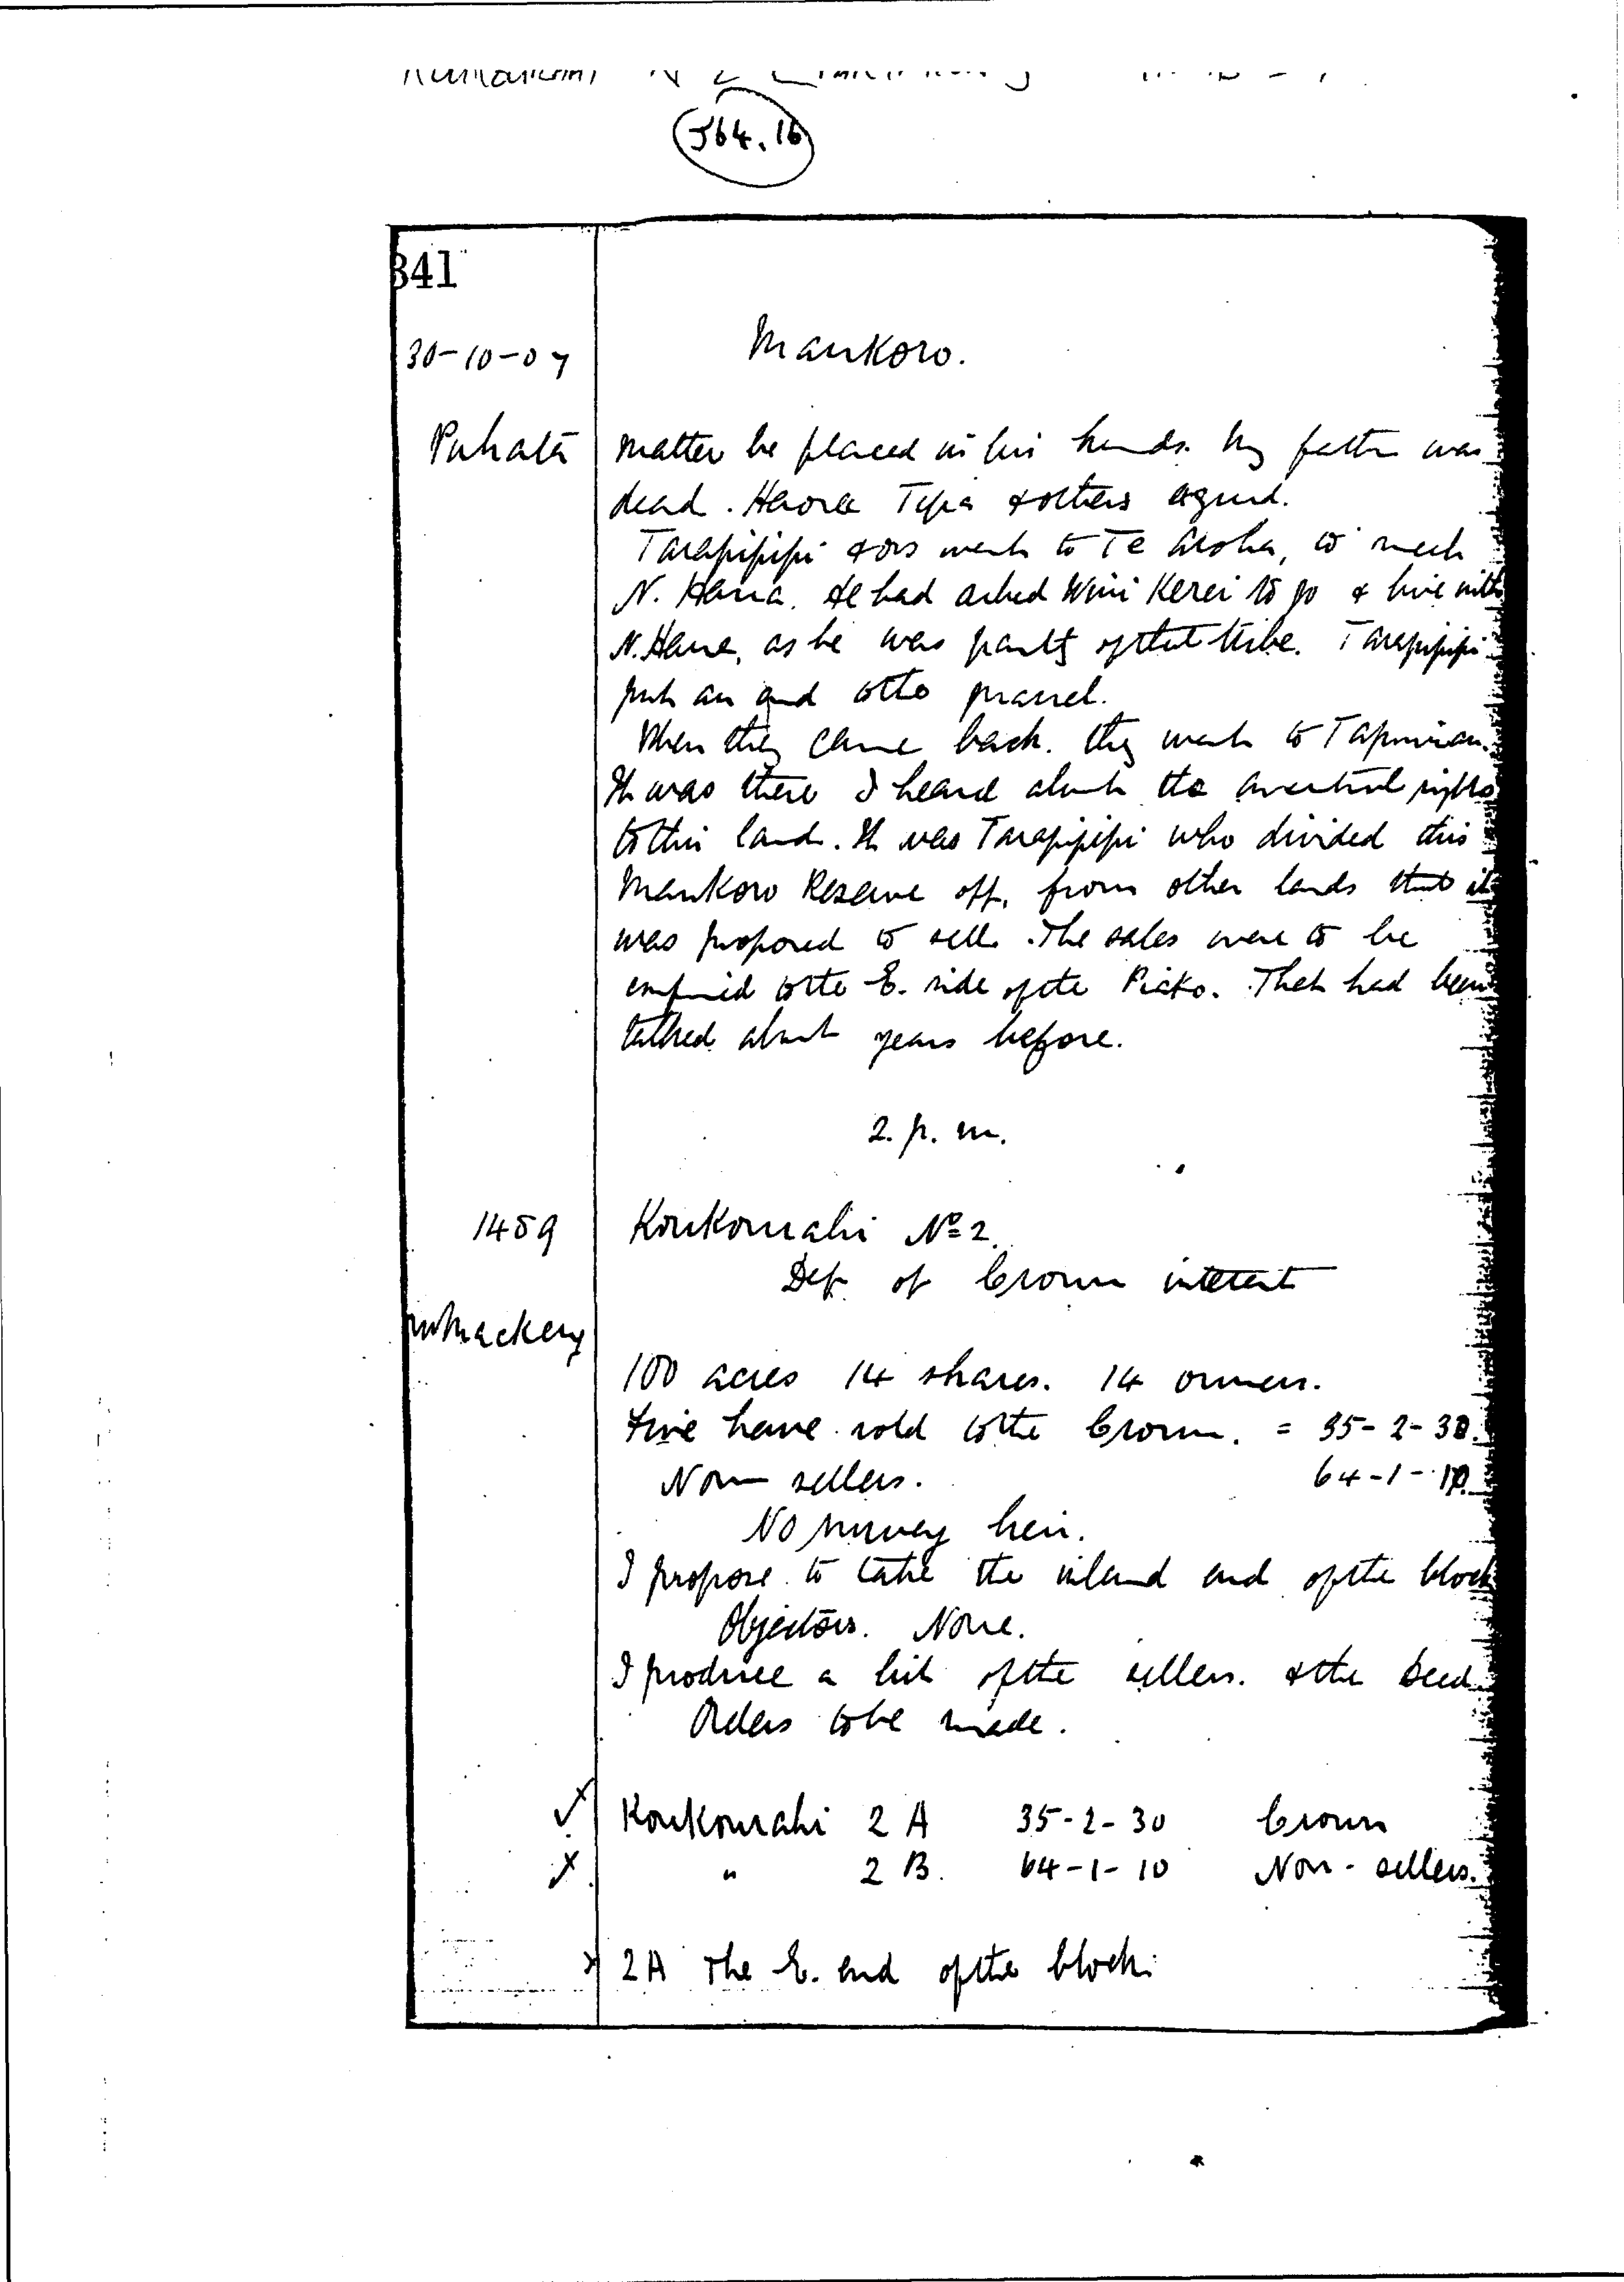 J64.16
341
30-10-07
Maukoro.
Puhata
matter be placed in his hands. My father was
dead. Haora Tipa & others agreed.
Tarapipipi & ors went to Te Aroha, to meet
N. Haua. He had asked Wini Kerei to go & live with
N. Haua, as he was partly of that tribe. Tarapipipi
put an end to the quarrel.
When they came back. they went to
It was there I heard about the ancestral rights
to this land. It was Tarapipipi who divided this
Maukoro Reserve off, from other lands that it
was proposed to sell. The sales were to be
confined to the E. side of the Piako. That had been
talked about years before.
2. p. m.
1459
Koukourahi No 2.
Def. of Crown interest
Mackery
100 acres 14 shares. 14 owners.
Five have sold to the Crown. = 35-2-30.
Non sellers. 64-1-10.
No survey lien.
I propose to take the inland end of the block
Objectors. None.
I produce a list of the sellers. & the Deed
Orders to be made.
Koukourahi 2 A 35-2-30 Crown
" 2 B. 64-1-10 Non-sellers.
2A The E. end of the block.